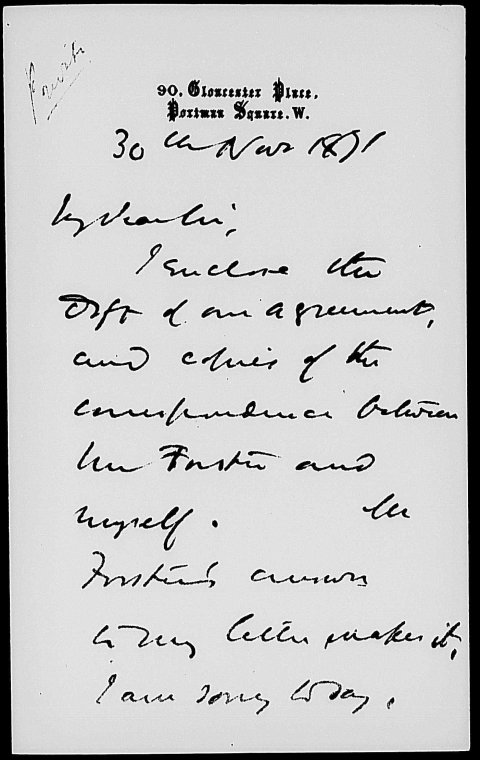 Private
90, Gloucester Place,
Portman Square. W.
30th Novr 1891
My dear Sir,
I enclose the
Dft of our agreement,
and copies of the
correspondence between
Mr Forster and
myself. Mr
Forster's answer
to my letter makes it,
I am sorry to say,